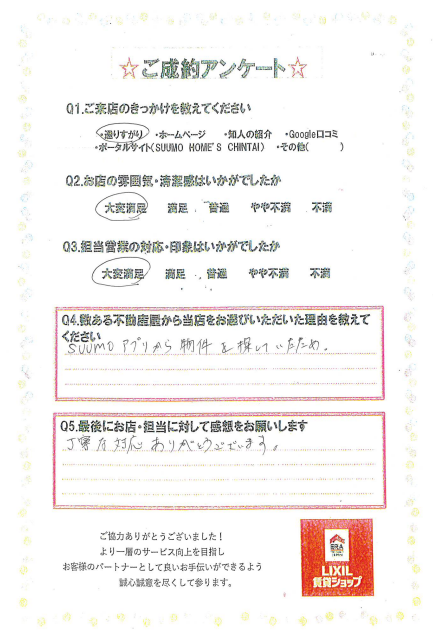 ☆ご成約アンケート☆
Q1.ご来店のきっかけを教えてください
・通りすがり ・ホームページ ・知人の紹介 ・Google口コミ
・ポータルサイト(SUUMO HOME'S CHINTAI) ・その他( )
Q2.お店の雰囲気・清潔感はいかがでしたか
大変満足 満足 普通 やや不満 不満
Q3.担当営業の対応・印象はいかがでしたか
大変満足 満足 普通 やや不満 不満
Q4.数ある不動産屋から当店をお選びいただいた理由を教えて
ください
SUUMOアプリから物件を探していたため。
Q5.最後にお店・担当に対して感想をお願いします
丁寧な対応ありがとうございます。
ご協力ありがとうございました！
より一層のサービス向上を目指し
お客様のパートナーとして良いお手伝いができるよう
誠心誠意を尽くして参ります。
ERA
LIXIL
賃貸ショップ